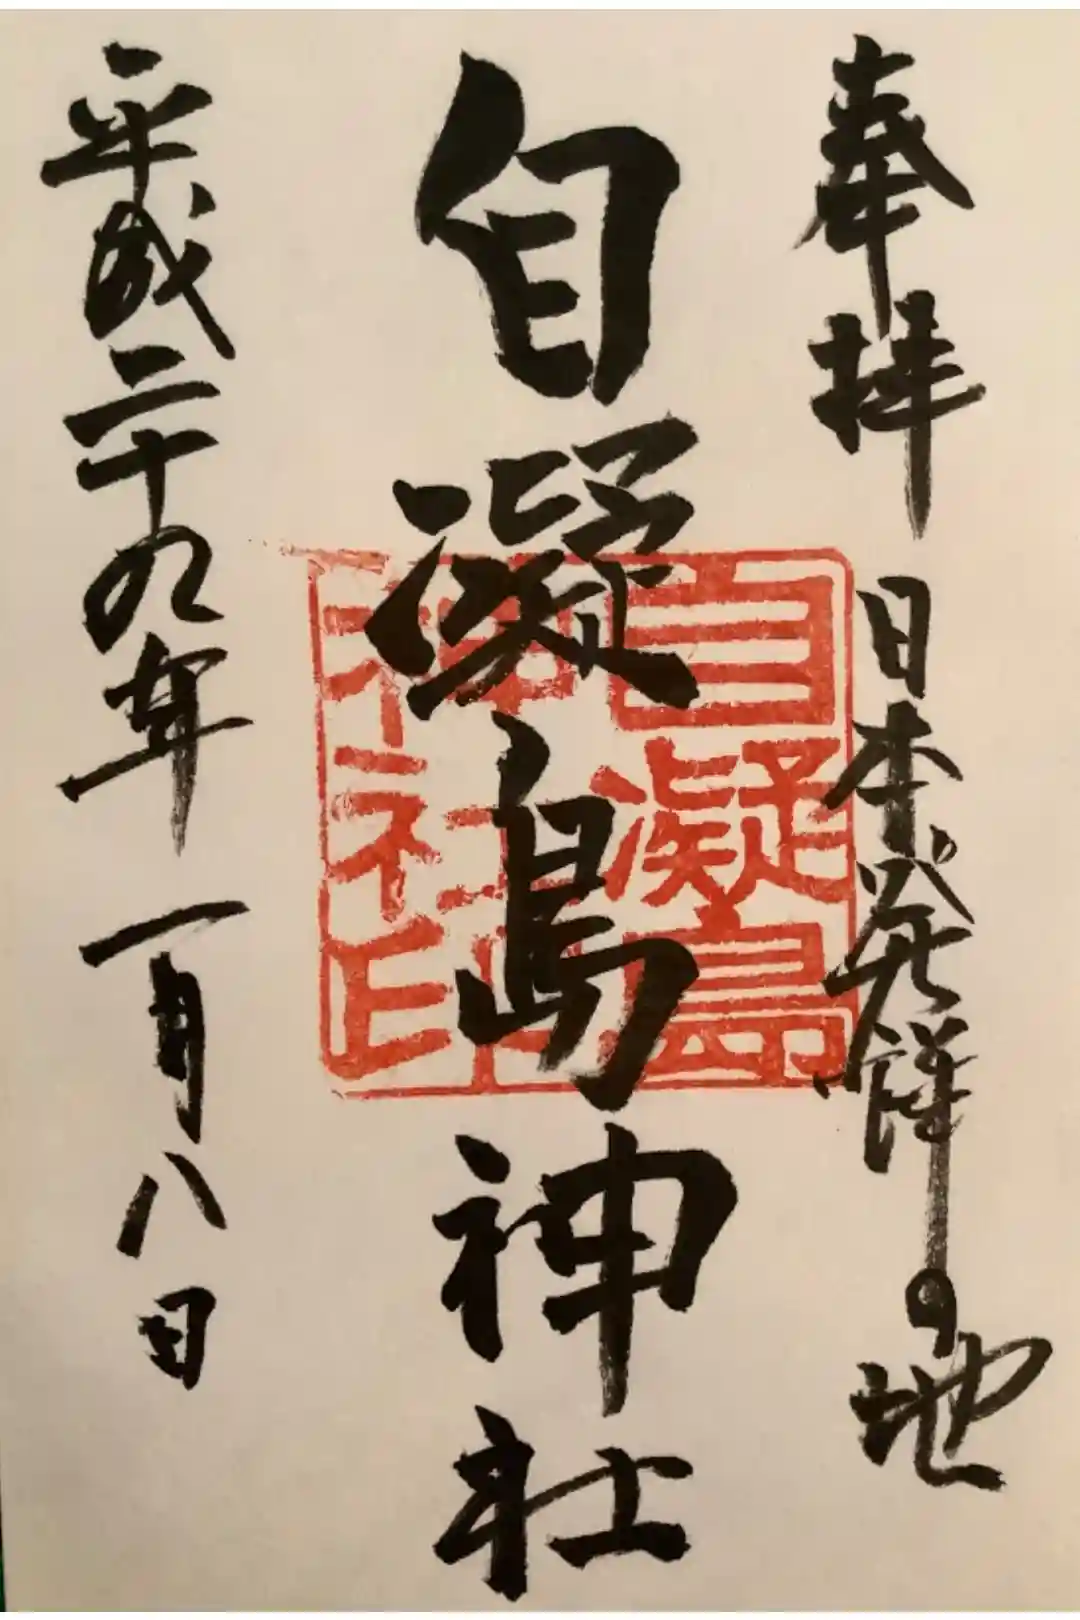 奉拝 日本発祥の地
自凝島神社
平成二十九年 一月八日
自凝島
神社印